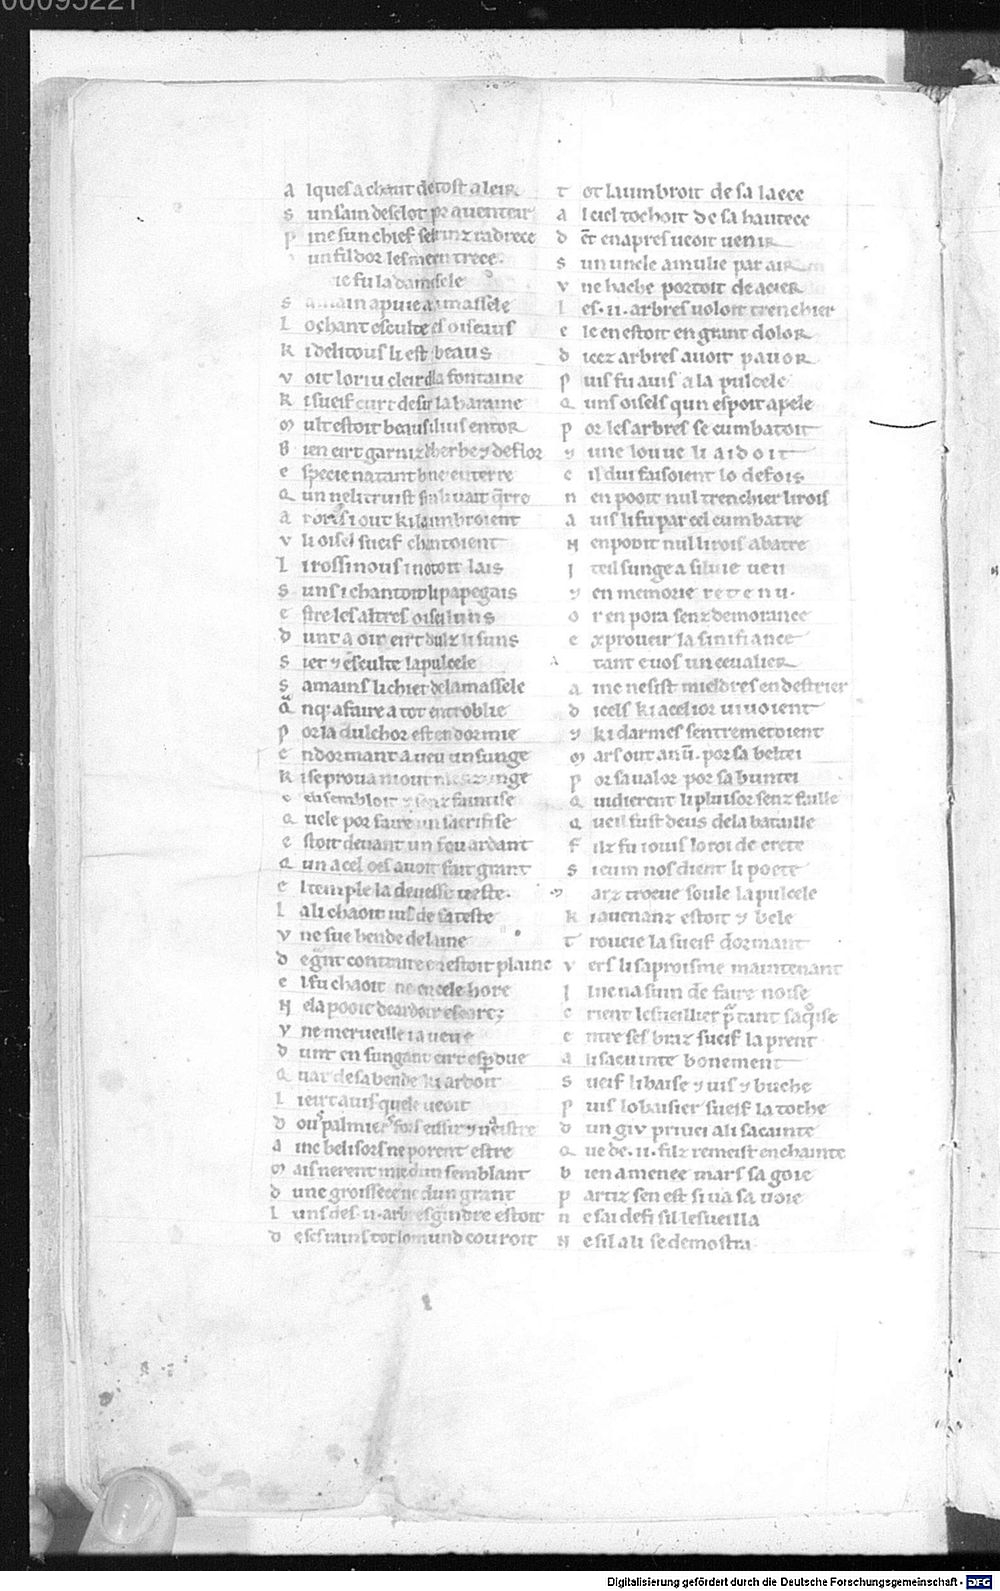 00095221
a lques a chaut de tost a leir
s un sain desclot por auenteir
p ine sun chief
un fil dor les menu trece
ie fu la damisele
s a main apuie a massele
l o chant esculte es oiseaus
k i delitous li est beaus
v oit lo riu cleir de la fontaine
k i sueif curt desur la haraine
m ult estoit beaus li lius entor
b ien eirt garniz dherbe ⁊ de flor
e spece na tant bue en terre
q un neli truist sia li uait querre
a rorisi out ki laumbroient
v li oisel sueif chantoient
l i rossinous i notoit lais
s uns i chantoit li papegais
e stre les altres oiseiluns
d unt a oir eirt dulz li suns
s iet ⁊ esculte la pulcele
s a mains li chiet de la massele
q nqͥ a faire a tot entroblie
p or la dulchor est endormie
e n dormant a ueu un sunge
k i se proua mout
e en sembloit ⁊ senz faintise
q uele por faire un sacrifise
e stoit deuant un fou ardant
q un a cel oes auoit fait grant
e l temple la deuesse ueste.
l ali chaoit ius de sa teste
v ne sue bende de laine
d
e l fu chaoit
n ela pooit de ardoir escorre;
v ne merueille i a ueue
d unt en sungant eirt esperdue
q uar de sa bende ki ardoit
l i eirt auis quele ueoit
d ous palmiers fors eissir ⁊ neistre
a inc belisors ne porent estre
m ais nerent mie dun semblant
d une groissece ne dun grant
l uns des .ii. arbres gindre estoit
d e ses rains tot lo mund couroit
t ot laumbroit de sa laece
a l ciel tochoit de sa hautece
d et en apres ueoit uenir
s un uncle amulie par air
v ne hache portoit de acier
l es .ii. arbres uoloit trenchier
e le en estoit en grant dolor
d icez arbres auoit pauor
p uis fu auis a la pulcele
q uns oisels qun espoit apele
p or les arbres se cumbatoit
⁊ une louue li aidoit
c il dui faisoient lo defois
n en pooit nul trenchier li rois
a uis li fu par cel cumbatre
n en pooit nul li rois abatre
i teil sunge a siluie ueu
⁊ en memorie retenu.
o r en pora senz demorance
e xproueir la sinifiance
a tant e uos un cevalier
a inc ne sist mieldres en destrier
d icels ki a cel ior uiuoient
⁊ ki darmes sentremetoient
m ars out a nū. por sa beltei
p or sa ualor por sa buntei
q uidierent li pluisor senz faille
q ueil fust deus de la bataille
f ilz fu iouis lo roi de crete
s icum nos dient li poete
m arz troeue soule la pulcele
k i auenanz estoit ⁊ bele
t roueie la sueif dormant
v ers li saproisme maintenant
i lne na suin de faire noise
c rient lesueillier
e ntre ses braz sueif la prent
a li sacuinte bonement
s ueif li baise ⁊ uis ⁊ buche
p uis lo baisier sueif la toche
d un giu priuei a li sacuinte
q ue de .ii. filz remeist enchainte
b ien a menee mars sa goie
p artiz sen est si ua sa uoie
n e sai de fi sil lesueilla
n e sil a li se demostra
Digitalisierung gefördert durch die Deutsche Forschungsgemeinschaft - DFG